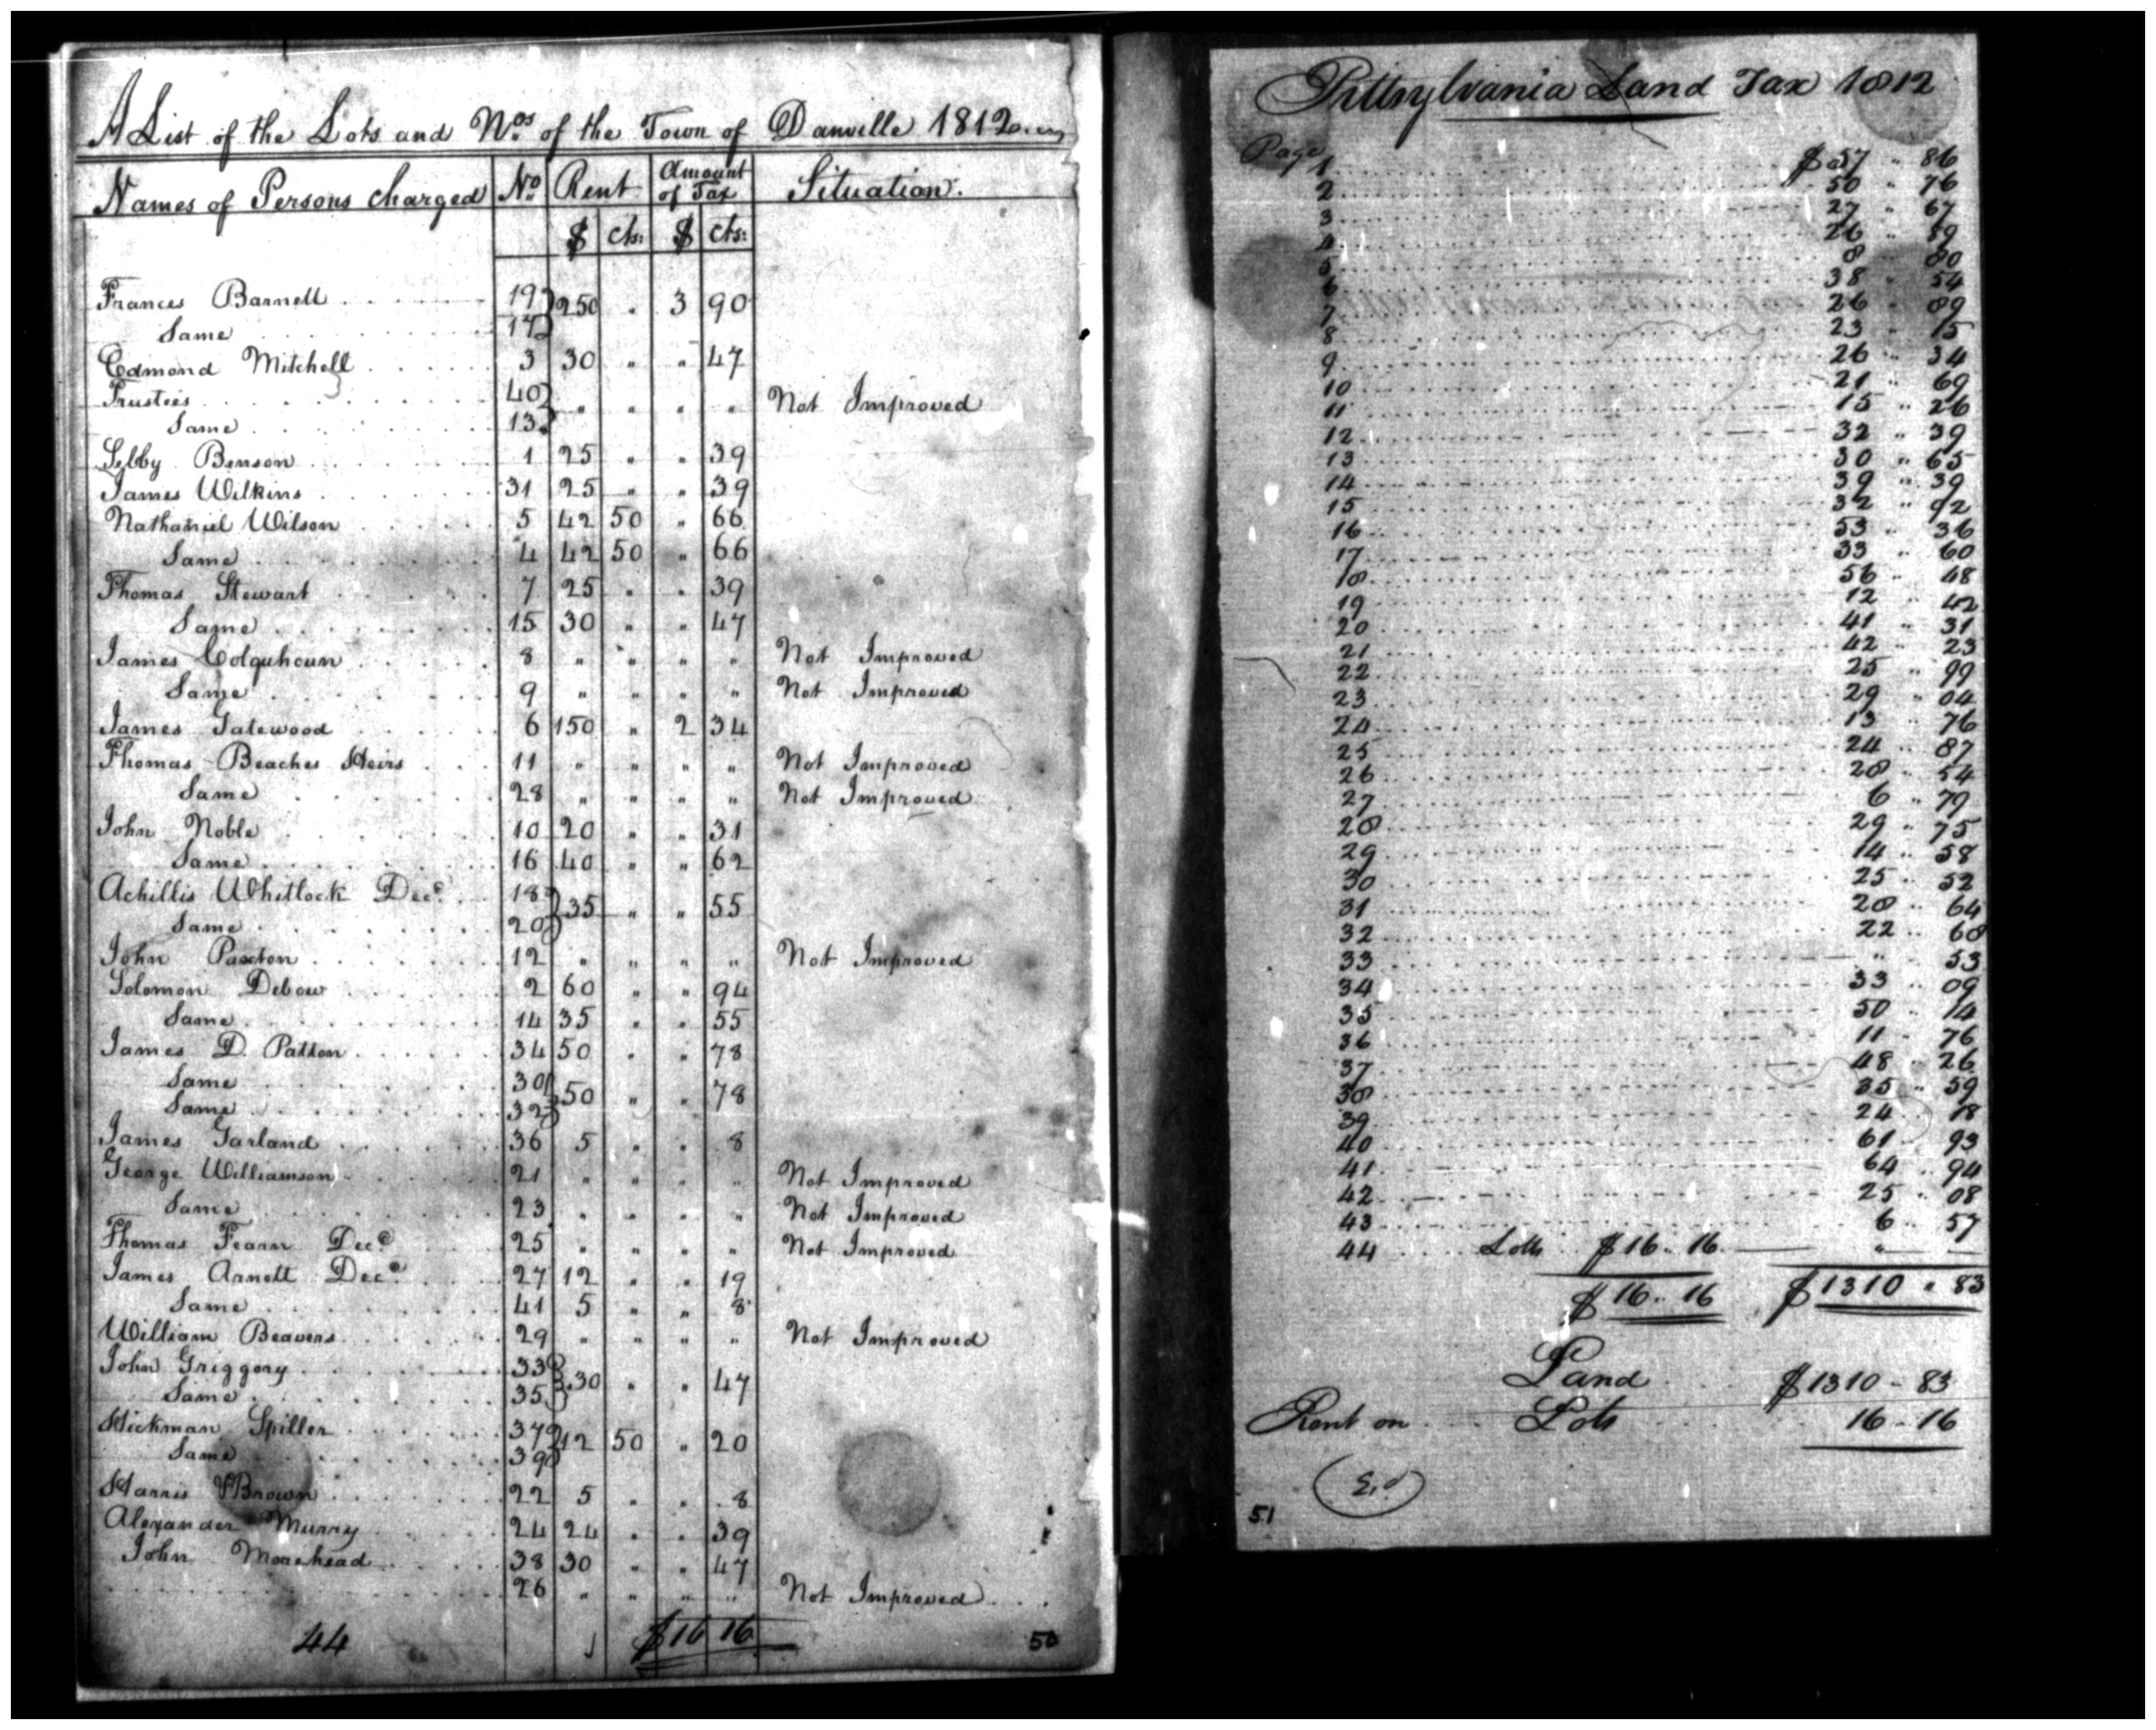 A List of the Lots and Nos of the Town of Danville 1812
Names of Persons charged No Rent Amount of Tax Situation
$ cts: $ cts:
Frances Barnett 19 250 " 3 90
Same 17
Edmond Mitchell 3 30 " " 47
Trustees 40 " " " " Not Improved
Same 13
Benson 1 25 " " 39
James Wilkins 31 25 " " 39
Nathaniel Wilson 5 42 50 " 66
Same 4 42 50 " 66
Thomas Stewart 7 25 " " 39
Same 15 30 " " 47
James Colquhoun 8 " " " " Not Improved
Same 9 " " " " Not Improved
James Gatewood 6 150 " 2 34
Thomas Beaches Heirs 11 " " " " Not Improved
Same 28 " " " " Not Improved
John Noble 10 20 " " 31
Same 16 40 " " 62
Achillis Whitlock Decd 18 35 " " 55
Same 20
John Paxton 12 " " " " Not Improved
Solomon Debow 2 60 " " 94
Same 14 35 " " 55
James D. Patton 34 50 " " 78
Same 30 50 " " 78
Same 32
James Garland 36 5 " " 8
George Williamson 21 " " " " Not Improved
Same 23 " " " " Not Improved
Thomas Fearn Decd 25 " " " " Not Improved
James Arnett Decd 27 12 " " 19
Same 41 5 " " 8
William Beavers 29 " " " " Not Improved
John Griggory 33 30 " " 47
Same 35
Hickman Spiller 37 12 50 " 20
Same 39
Harris Brown 22 5 " " 8
Alexander Murry 24 24 " " 39
John Morehead 38 30 " " 47
26 " " " " Not Improved
44 $16 16 50
Pittsylvania Land Tax 1812
Page 1 $57 " 86
2 50 " 76
3 27 " 67
4 26 " 89
5 8 " 80
6 38 " 54
7 26 " 89
8 23 " 15
9 26 " 34
10 21 " 69
11 15 " 26
12 32 " 39
13 30 " 65
14 39 " 39
15 32 " 92
16 53 " 36
17 33 " 60
18 56 " 48
19 12 " 42
20 41 " 31
21 42 " 23
22 25 " 99
23 29 " 04
24 13 " 76
25 24 " 87
26 28 " 54
27 6 " 79
28 29 " 75
29 14 " 58
30 25 " 52
31 28 " 64
32 22 " 68
33 " 53
34 33 " 09
35 50 " 14
36 11 " 76
37 48 " 26
38 35 " 59
39 24 " 18
40 61 " 93
41 64 " 94
42 25 " 08
43 6 " 57
44 Lotts $16 " 16 "
$16 " 16 $1310 " 83
Land $1310 - 83
Rent on Lots 16 - 16
Ed
51